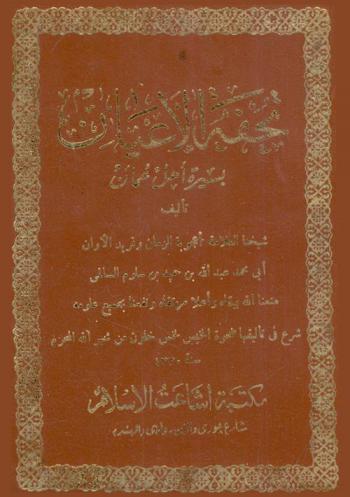 تحفة الأعيان
بسيرة أهل عمان
تأليف
شيخنا العلامة أعجوبة الزمان وفريد الأوان
أبي محمد عبد الله بن حميد بن سلوم السالمي
متعنا الله ببقاه وأعلا مرتقاه ونفعنا بجميع علومه
شرع في تأليفها ضحوة الخميس لخمس خلون من شهر الله المحرم
سنة
مكتبة إشاعت الاسلام
شارع